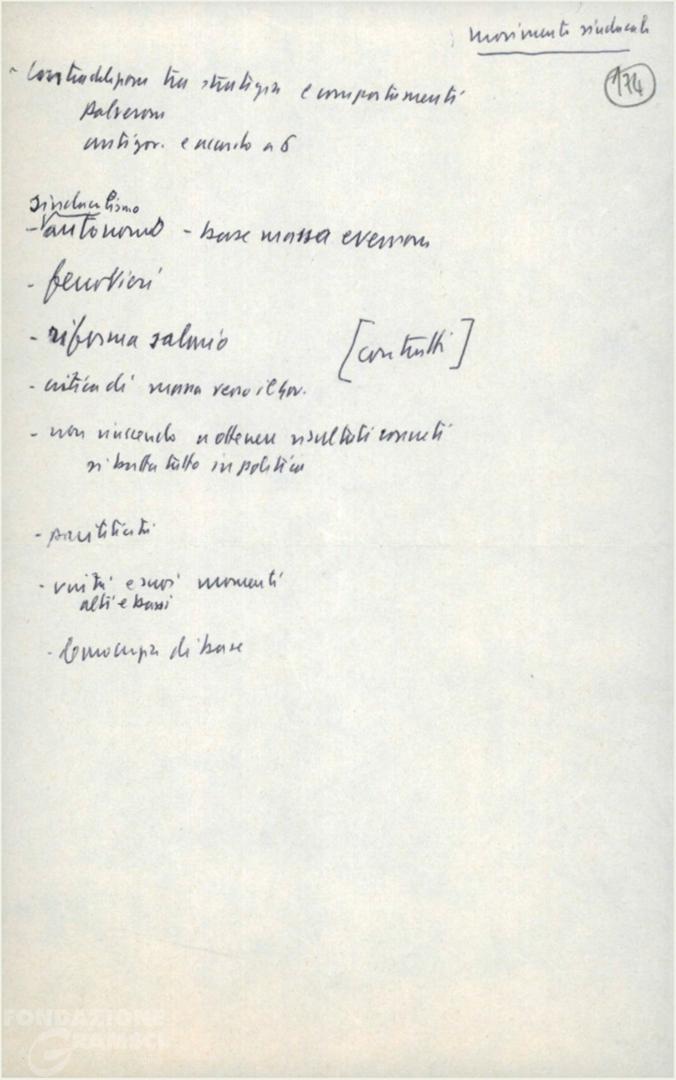 Movimento sindacale
174
- Contraddizione tra strategia e comportamenti
antigov. e accordo a 6
sindacalismo
- autonomo - base massa eversione
- ferrovieri
- riforma salario [contratti]
- critica di massa verso il gov.
- non riuscendo a ottenere risultati concreti
si butta tutto in politica
- unità e suoi momenti
alti e bassi
- democrazia di base
FONDAZIONE
GRAMSCI